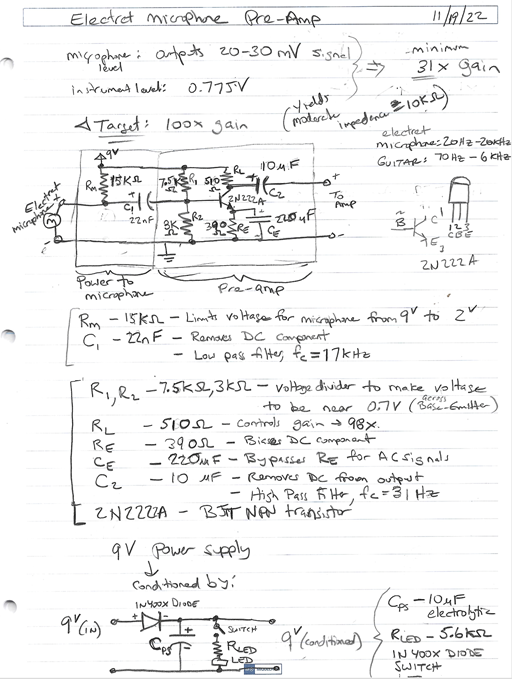 Electret microphone Pre-Amp 11/19/22
microphone: outputs 20-30 mV signal
level
instrument level: 0.775V
⇒ minimum
31x Gain
(yields
moderate impedance ≈ 10kΩ)
Target: 100x gain
electret
microphone: 20Hz-20kHz
GUITAR: 70Hz - 6kHz
9V
Rm 15kΩ
C1
22nF
7.5kΩ R1
510Ω RL
10µF
C2
2N222A
3kΩ R2
390Ω RE
220µF
CE
Electret
microphone
M
+
-
+
To
Amp
-
Power to
microphone
Pre-amp
B C E3
1 2 3
C B E
2N222A
Rm - 15kΩ - Limits voltages for microphone from 9V to 2V
C1 - 22nF - Removes DC component
- Low pass filter, fc = 17kHz
R1, R2 - 7.5kΩ, 3kΩ - voltage divider to make voltage
to be near 0.7V (across Base-Emitter)
RL - 510Ω - Controls gain → 98x.
RE - 390Ω - Biases DC component
CE - 220µF - Bypasses RE for AC signals
C2 - 10 µF - Removes DC from output
- High Pass Filter, fc = 31 Hz
2N222A - BJT NPN transistor
9V Power supply
conditioned by:
1N400X DIODE
9V(IN)
+
-
+
CPS
SWITCH
RLED
LED
9V(conditioned)
CPS - 10µF
electrolytic
RLED - 5.6kΩ
1N400X DIODE
SWITCH